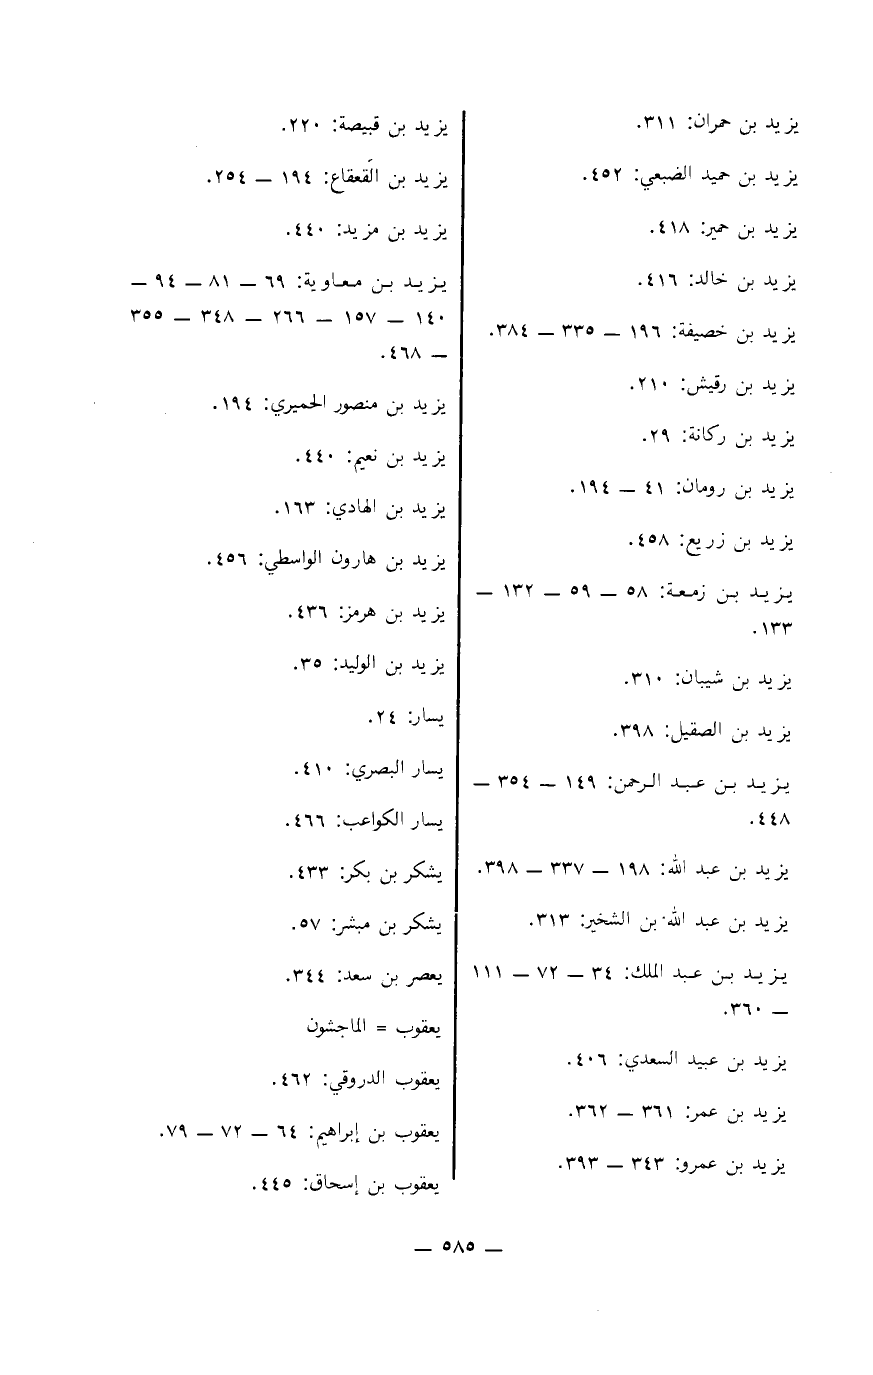 يزيد بن حمران: ٣١١.
يزيد بن حميد الضبعي: ٤٥٢.
يزيد بن حمير: ٤١٨.
يزيد بن خالد: ٤١٦.
يزيد بن خصيفة: ١٩٦ — ٣٣٥ — ٣٨٤.
يزيد بن رقيش: ٢١٠.
يزيد بن ركانة: ٢٩.
يزيد بن رومان: ٤١ — ١٩٤.
يزيد بن زريع: ٤٥٨.
يزيد بن زمعة: ٥٨ — ٥٩ — ١٣٢ —
١٣٣.
يزيد بن شيبان: ٣١٠.
يزيد بن الصقيل: ٣٩٨.
يزيد بن عبد الرحمن: ١٤٩ — ٣٥٤ —
٤٤٨.
يزيد بن عبد الله: ١٩٨ — ٣٣٧ — ٣٩٨.
يزيد بن عبد الله بن الشخير: ٣١٣.
يزيد بن عبد الملك: ٣٤ — ٧٢ — ١١١
— ٣٦٠.
يزيد بن عبيد السعدي: ٤٠٦.
يزيد بن عمر: ٣٦١ — ٣٦٢.
يزيد بن عمرو: ٣٤٣ — ٣٩٣.
يزيد بن قبيصة: ٢٢٠.
يزيد بن القَعقاع: ١٩٤ — ٢٥٤.
يزيد بن مزيد: ٤٤٠.
يزيد بن معاوية: ٦٩ — ٨١ — ٩٤ —
١٤٠ — ١٥٧ — ٢٦٦ — ٣٤٨ — ٣٥٥
— ٤٦٨.
يزيد بن منصور الحميري: ١٩٤.
يزيد بن نعيم: ٤٤٠.
يزيد بن الهادي: ١٦٣.
يزيد بن هارون الواسطي: ٤٥٦.
يزيد بن هرمز: ٤٣٦.
يزيد بن الوليد: ٣٥.
يسار: ٢٤.
يسار البصري: ٤١٠.
يسار الكواعب: ٤٦٦.
يشكر بن بكر: ٤٣٣.
يشكر بن مبشر: ٥٧.
يعصر بن سعد: ٣٤٤.
يعقوب = الماجشون
يعقوب الدروقي: ٤٦٢.
يعقوب بن إبراهيم: ٦٤ — ٧٢ — ٧٩.
يعقوب بن إسحاق: ٤٤٥.
— ٥٨٥ —